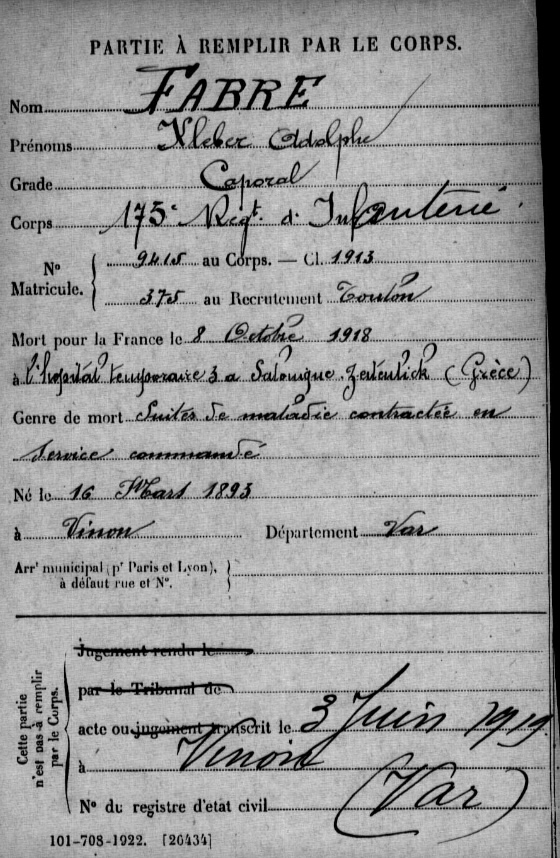 PARTIE À REMPLIR PAR LE CORPS.
Nom FABRE
Prénoms Kleber Adolphe
Grade Caporal
Corps 173e Regt. d' Infanterie
No Matricule. 9415 au Corps. — Cl. 1913
375 au Recrutement Toulon
Mort pour la France le 8 Octobre 1918
à l'hopital temporaire 3 a Salonique. Zeitenlick (Grèce)
Genre de mort Suites de maladie contractée en
service commandé
Né le 16 Mars 1893
à Vinon Département Var
Arrt municipal (pr Paris et Lyon),
à défaut rue et No.
Cette partie n'est pas à remplir par le Corps.
Jugement rendu le
par le Tribunal de
acte ou jugement transcrit le 3 Juin 1919
à Vinon
No du registre d'état civil (Var)
101-708-1922. [26434]